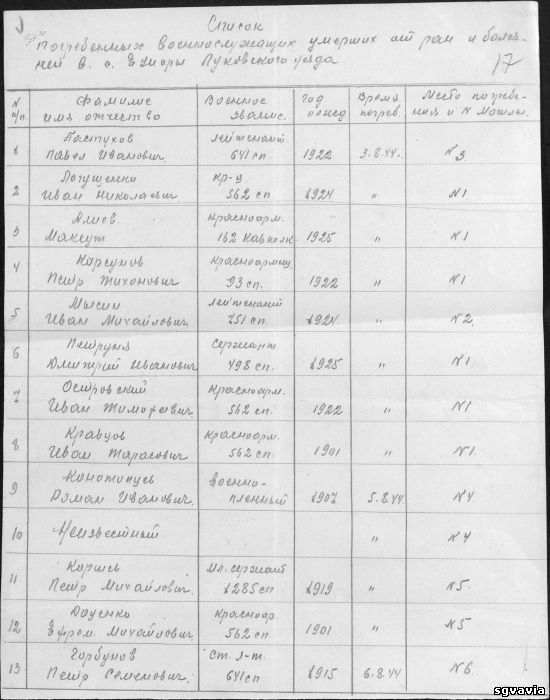 Список
погребенных военнослужащих умерших от ран и болез-
ней в. с. Ежиоры Луковского уезда
17
N п/п. Фамилие имя отчество Военное звание. Год рожд Время погреб. Место погребения и N могилы
1 Пастухов Павел Иванович лейтенант 641 сп. 1922 3.8.44. N 3
2 Логущенко Иван Николаевич кр-ц 562 сп 1924 " N1
3 Алиев Максут красноарм. 162 кавполк. 1925 " N1
4 Карсунов Петр Тихонович красноармец 93 сп 1922 " N1
5 Мысин Иван Михайлович лейтенант 751 сп. 1924 " N 2
6 Петруня Дмитрий Иванович сержант 498 сп. 1925 " N1
7 Островский Иван Тимофеевич красноарм. 562 сп. 1922 " N1
8 Кравцов Иван Тарасович красноарм. 562 сп. 1901 " N1.
9 Конотопусь Роман Иванович военно-пленный 1907 5.8.44 N4
10 Неизвестный " N 4
11 Корись Петр Михайлович. мл. сержант 1285 сп 1919 " N5.
12 Доценко Ефрем Михайлович красноар. 562 сп 1901 " N5
13 Горбунов Петр Семенович. ст. л-т. 641 сп 1915 6.8.44 N6.
sgvavia